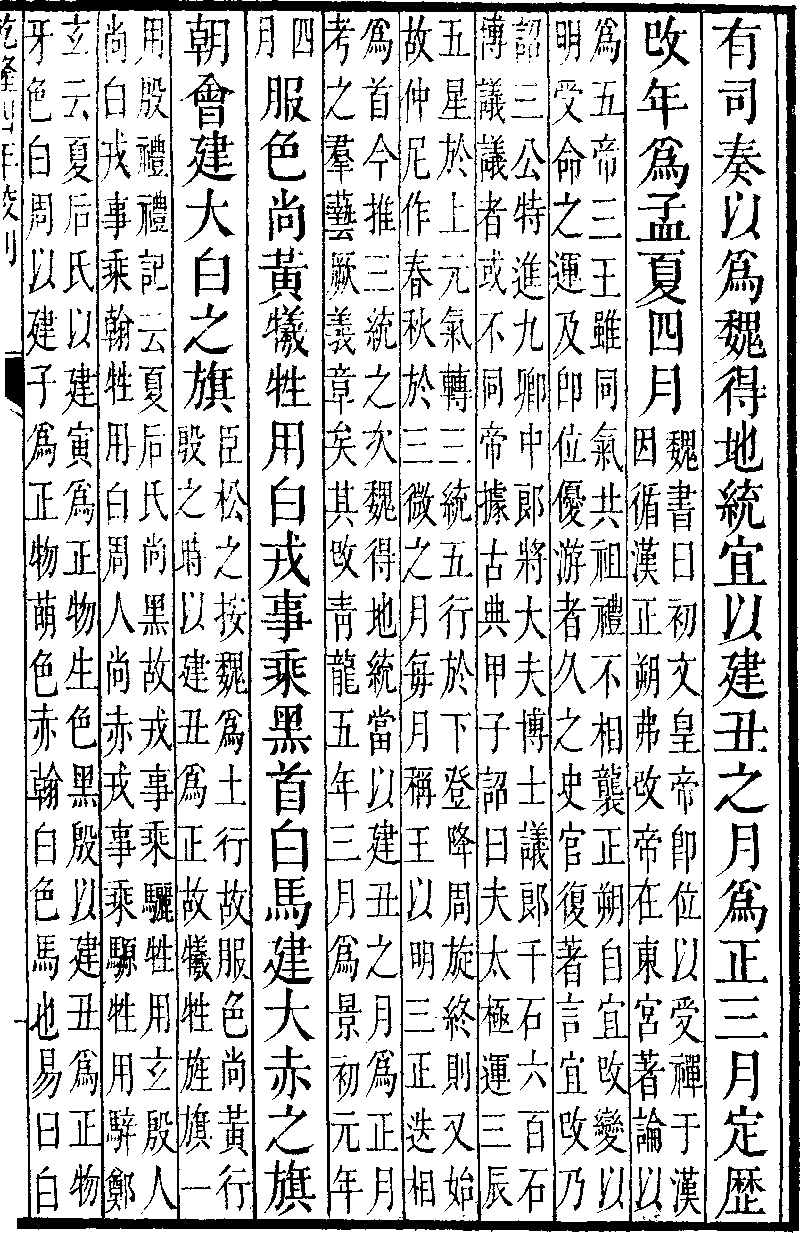 有司奏以爲魏得地統宜以建丑之月爲正三月定歴
改年爲孟夏四月
魏書曰初文皇帝卽位以受禪于漢
因循漢正朔弗改帝在東宮著論以
爲五帝三王雖同氣共祖禮不相襲正朔自宜改變以
明受命之運及卽位優游者久之史官復著言宜改乃
詔三公特進九卿中郎將大夫博士議郎千石六百石
博議議者或不同帝據古典甲子詔曰夫太極運三辰
五星於上元氣轉三統五行於下登降周旋終則又始
故仲尼作春秋於三微之月每月稱王以明三正迭相
爲首今推三統之次魏得地統當以建丑之月爲正月
考之羣藝厥義章矣其改青龍五年三月爲景初元年
四
月
服色尚黃犧牲用白戎事乘黑首白馬建大赤之旗
朝會建大白之旗
臣松之按魏爲土行故服色尚黃行
殷之時以建丑爲正故犧牲旌旗一
用殷禮禮記云夏后氏尚黑故戎事乘驪牲用玄殷人
尚白戎事乘翰牲用白周人尚赤戎事乘騵牲用騂鄭
玄云夏后氏以建寅爲正物生色黑殷以建丑爲正物
牙色白周以建子爲正物萌色赤翰白色馬也易曰白
乾隆四年校刊